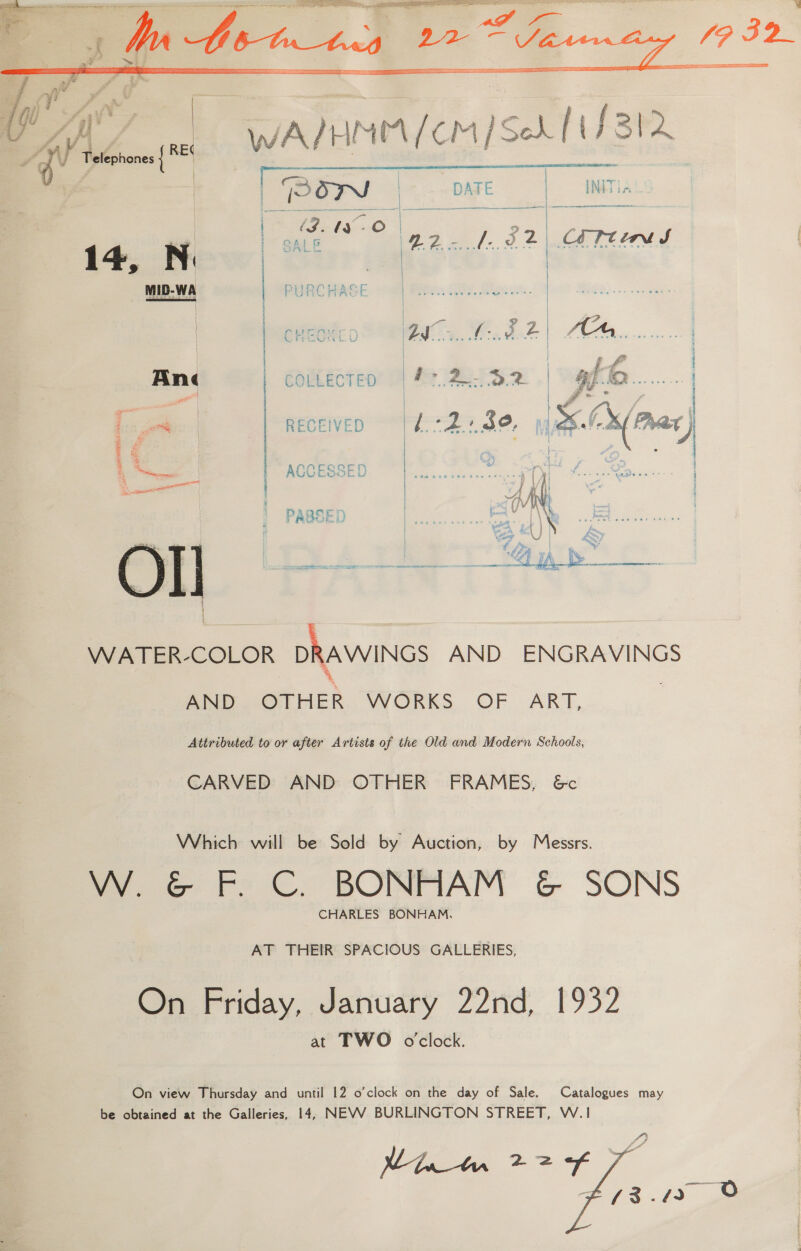 22nd January 1932
WA/HMM/CM/Sal/1/312
Telephones { REG
BON DATE INITIALS
13.15.0
SALE 22.1.32
14, N
MID-WA PURCHASE
CHECKED
Anc COLLECTED 1.2.32
RECEIVED 1.2.32.
ACCESSED
PASSED
OIL
WATER-COLOR DRAWINGS AND ENGRAVINGS
AND OTHER WORKS OF ART,
Attributed to or after Artists of the Old and Modern Schools,
CARVED AND OTHER FRAMES, &c
Which will be Sold by Auction, by Messrs.
W. & F. C. BONHAM & SONS
CHARLES BONHAM.
AT THEIR SPACIOUS GALLERIES,
On Friday, January 22nd, 1932
at TWO o'clock.
On view Thursday and until 12 o'clock on the day of Sale. Catalogues may
be obtained at the Galleries, 14, NEW BURLINGTON STREET, W.1
22
£13.15-0